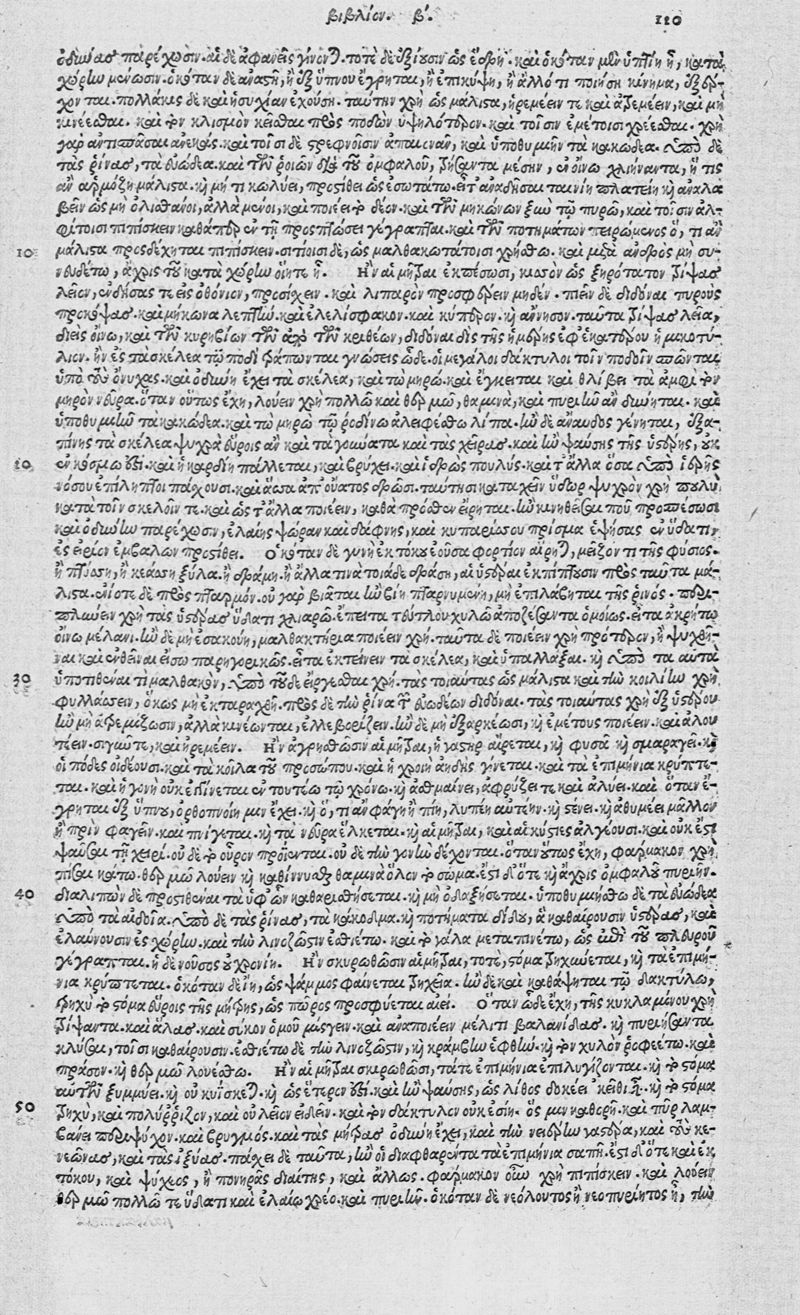 βιβλίον. β΄. 110
ὀδύνας παρέχωσιν. αἱ δὲ ἀφανεῖς γίνονται. τοτὲ δὲ ἐξίασιν ὡς ἕδρη. καὶ ὁκόταν μὲν ὑπτίη ᾖ, κατὰ
χώρην μένωσιν. ὁκόταν δὲ ἀναστῇ, ἢ ἐξ ὕπνου ἐγρῆται, ἢ ἐπικύψῃ, ἢ ἄλλό τι ποιήσῃ κίνημα, ἐξέρ-
χονται. πολλάκις δὲ καὶ ἡσυχίαν ἐχούσῃ. ταύτην χρὴ ὡς μάλιστα, ἠρεμέειν τε καὶ ἀτρεμέειν, καὶ μὴ
κινέεσθαι. καὶ τὴν κλισμὸν κεῖσθαι πρὸς ποδῶν ὑψηλότερον. καὶ τοῖσιν ἐμέτοισι χρέεσθαι. χρὴ
γὰρ ἀντισπάσαι ἀνεκάς. καὶ τοῖσι δὲ στρεφνοῖσιν ἀπαιονᾶν, καὶ ὑποθυμιῆν τὰ κακώδεα. ὑπὸ δὲ
τὰς ῥίνας, τὰ εὐώδεα. καὶ τῶν ῥοιῶν διὰ τοῦ ὀμφαλοῦ, ξήσαντα μέσην, ἐν οἴνῳ χλιήναντα, ἥ τις
ἂν ἁρμόζῃ μάλιστα. κἢ μή τι κωλύει, προστίθει ὡς ἐσωτάτω. εἶτ᾽ ἀναδῆσαι ταινίῃ πλατείῃ κἢ ἀναλα
βεῖν ὡς μὴ ὀλισθάνοι, ἀλλὰ μένοι, καὶ ποιέει τὸ δέον. καὶ τῶν μηκώνων ξὺν τῷ πυρῷ, καὶ τοῖσιν ἀλ-
φίτοισι πιπίσκειν καθάπερ ἐν τῇ προπτώσει γέγραπται. καὶ τῶν ποτημάτων πειρώμενος ὅ, τι ἂν
10 μάλιστα προσδέχηται πιπίσκειν. σιτίοισι δὲ, ὡς μαλθακωτάτοισι χρήσθω. καὶ μετὰ ἀνδρὸς μὴ συ-
νευδέτω, ἄχρις τοῦ κατὰ χώρην ὁΐητε ᾖ. Ἢν αἱ μῆτραι ἐκπέσωσι, κισσὸν ὡς ξηρότατον τρίψας
λεῖον, ἐνδήσας τε εἰς ὀθόνιον, προσίχειν. καὶ λιπαρὸν προσφέρειν μηδέν. πιεῖν δὲ διδόναι πυροὺς
προκόψας. καὶ μήκωνα λεπτὴν. καὶ ἐλελίσφακον. καὶ κύπερον. κἢ ἄννησον. ταῦτα τρίψας λεῖα,
διεὶς οἴνῳ, καὶ τῶν κυρηβίων τῶν ἀπὸ τῶν κριθέων, διδόναι δὶς τῆς ἡμέρης ἐφ᾽ ἑκατέρου ἡμικοτύ-
λιον. ἢν ἐς τὰ σκέλεα τῷ ποδὶ τράπωνται γνώσεις ὧδε. οἱ μεγάλοι δάκτυλοι τοῖν ποδοῖν σπῶνται
ὑπὸ τοὺς ὄνυχας. καὶ ὀδύνη ἔχει τὰ σκέλεα, καὶ τὼ μηρώ. καὶ ἔγκειται καὶ θλίβει τὰ ἀμφὶ τὸν
μηρὸν νεῦρα. ὅταν οὕτως ἔχῃ, λούειν χρὴ πολλῷ καὶ θερμῷ, θαμινὰ, καὶ πυριῆν ἂν δύνηται. καὶ
ὑποθυμιῆν τὰ κακώδεα. καὶ τὼ μηρὼ τῷ ῥοδίνῳ ἀλειφέσθω λίπα. ἢν δὲ ἄναυδος γένηται, ἐξα-
πίνης τὰ σκέλεα ψυχρὰ εὕροις ἂν καὶ τὰ γούνατα καὶ τὰς χεῖρας. καὶ ἢν ψαύσῃς τῆς ὑστέρης, οὐκ
20 ἐν κόσμῳ ἐστί. καὶ ἡ καρδίη πάλλεται, καὶ βρύχει. καὶ ἱδρὼς πουλύς. καὶ τ᾽ ἄλλα ὅσα ὑπὸ ἱερῆς
νόσου ἐπίληπτοι πάσχουσι. καὶ ἄσσα ἀπ᾽ οὔατος δρῶσι. ταύτῃσι καταχεῖν ὕδωρ ψυχρὸν χρὴ πουλὺ
κατὰ τοῖν σκελοῖν τε καὶ ὡς τ᾽ ἄλλα ποιέειν, καθὰ πρόσθεν εἴρηται. ἢν κινηθεῖσαί που προπέσωσι
καὶ ὀδύνην παρέχωσιν, ἐλαίης ψώραν καὶ δάφνης, καὶ κυπαρίσσου πρίσμα ἑψήσας ἐν ὕδατι,
ἐς εἴριον ἐμβαλὼν προστίθει. Ὁκόταν δὲ γυνὴ ἐκ τόκου ἐοῦσα φορτίον αἴρηται, μεῖζόν τι τῆς φύσιος.
ἢ πτίσσῃ, ἢ κεάσῃ ξύλα. ἢ δράμῃ. ἢ ἄλλα τινὰ τοιάδε δράσῃ, αἱ ὑστέραι ἐκπίπτουσιν πρὸς ταῦτα μά-
λιστα. ἐνίοτε δὲ πρὸς πταρμόν. οὐ γὰρ βιᾶται ἢν βίῃ πταρνυμένη, μὴ ἐπιλάβηται τῆς ῥινός. περι-
πλύνειν χρὴ τὰς ὑστέρας ὕδατι χλιαρῷ. ἔπειτα τεύτλου χυλῷ ἀποζέσαντα ὁμοίως. εἶτα ἀκρήτῳ
οἴνῳ μέλανι. ἢν δὲ μὴ ἐσακούῃ, μαλθακτήρια ποιέειν χρή. ταῦτα δὲ ποιέειν χρὴ πρότερον, ἢ ψυχθῆ-
ναι καὶ ἐνθεῖναι εἴσω παρηγορικῶς. εἶτα ἐκτείνειν τὰ σκέλεα, καὶ ὑπαλλάξαι. κἢ ὑπὸ τὰ αὐτὰ
30 ὑποτιθέναι τι μαλθακὸν, ὑπὸ τοῦδε εἴργεσθαι χρή. τὰς τοιαύτας ὡς μάλιστα καὶ τὴν κοιλίην χρὴ
φυλάσσειν, ὅκως μὴ ἐκταραχθῇ. πρὸς δὲ τὴν ῥῖνα τῶν εὐωδέων διδόναι. τὰς τοιαύτας χρὴ ἐξ ὑστέρου
ἢν μὴ ἀτρεμίζωσιν, ἀλλὰ κινέωνται, ἑλλεβορίζειν. ἢν δὲ μὴ ἐξαρκέωσι, κἢ ἐμέτους ποιέειν. καὶ ἀλου
τέειν. σιγᾶν τε, καὶ ἠρεμέειν. Ἢν ἀγρηθῶσιν αἱ μῆτραι, ἡ γαστὴρ αἴρεται, κἢ φυσᾶται κἢ σμαραγεῖ. κἢ
οἱ πόδες οἰδέουσι. καὶ τὰ κοῖλα τοῦ προσώπου. καὶ ἡ χροιὴ ἀηδὴς γίνεται. καὶ τὰ ἐπιμήνια κρύπτε-
ται. καὶ ἡ γονὴ οὐκ ἐγγίνεται ἐν τουτέῳ τῷ χρόνῳ. κἢ ἀσθμαίνει, ἀφρίζει τε καὶ ἀλύει. καὶ ὅταν ἐ-
γρῆται ἐξ ὕπνου, ὀρθοπνοίη μιν ἔχει. κἢ ὅ, τι ἂν φάγῃ ἢ πίῃ, λυπέει αὐτέην. κἢ στένει. κἢ ἀθυμέει μᾶλλον
ἢ πρὶν φαγεῖν. καὶ πνίγεται. κἢ τὰ νεῦρα ἕλκεται. κἢ αἱ μῆτραι, καὶ αἱ κύστιες ἀλγέουσι. καὶ οὐκ ἔστι
ψαῦσαι τῇ χειρί. οὐδὲ τὸ οὖρον προΐενται. οὐδὲ τὴν γονὴν δέχονται. ὅταν οὕτως ἔχῃ, φάρμακον χρὴ
πῖσαι κάτω. θερμῷ λούειν κἢ καθιννῦσθαι θαμινὰ ὅλον τὸ σῶμα. ἔστι δ᾽ ὅτε κἢ ἄχρις ὀμφαλοῦ πυριῆν.
40 διαλιπὼν δὲ προστιθέναι τὰ ὑφ᾽ ὧν καθαριθήσεται. κἢ μὴ ὀδαξήσεται. ὑποθυμιήσθω δὲ τὰ εὐώδεα
ὑπὸ τὰ αἰδοῖα. ὑπὸ δὲ τὰς ῥῖνας, τὰ κάκοδμα. κἢ ποτήματα δίδου, ἃ καθαίρουσιν ὑστέρας, καὶ
ἐλαύνουσιν ἐς χώρην. καὶ τὴν λινόζωστιν ἐσθιέτω. καὶ τὸ γάλα μεταπινέτω, ὡς ἐπὶ τοῦ πλευροῦ
γέγραπται. ἡ δὲ νοῦσος οὐ χρονίη. Ἢν σκιρωθῶσιν αἱ μῆτραι, τότε, στόμα τρηχύνεται, κἢ τὰ ἐπιμή-
νια κρύπτεται. ὁκόταν δὲ ἴῃ, ὡς ψάμμος φαίνεται τρηχείη. ἢν δὲ καὶ καθάψηται τῷ δακτύλῳ,
τρηχὺ τὸ στόμα εὕροις τῆς μήτρης, ὡς πῶρος προσφύεται ἀεί. Ὅταν ὧδε ἔχῃ, τῆς κυκλαμίνου χρὴ
τρίψαντα. καὶ ἅλας. καὶ σῦκον ὁμοῦ μίσγειν. καὶ ἀναποιέειν μέλιτι βαλανίδας. κἢ πυριήσαντα
κλύσαι, τοῖσι καθαίρουσιν. ἐσθιέτω δὲ τὴν λινόζωστιν, κἢ κράμβην ἑφθήν. κἢ τὸν χυλὸν ῥοφεέτω. καὶ
πράσον. κἢ θερμῷ λουέσθω. Ἢν αἱ μῆτραι σκιρωθῶσι, τά τε ἐπιμήνια ἐπιλυγίζονται. κἢ τὸ στόμα
αὐτῶν ξυμμύει. κἢ οὐ κυΐσκεται. κἢ ὡς ἕτερον ἐστί. καὶ ἢν ψαύσῃς, ὡς λίθος δοκέει κεῖθι ᾖ. κἢ τὸ στόμα
50 τρηχὺ, καὶ πολύρριζον, καὶ οὐ λεῖον ἰδεῖν. καὶ τὸν δάκτυλον οὐκ ἐσίῃ. ὅς μιν καθορῇ. καὶ πῦρ λαμ-
βάνει περιψύχον. καὶ βρυγμός. καὶ τὰς μήτρας ὀδύνη ἔχει, καὶ τὴν νειρὴν γαστέρα, καὶ τοὺς κε-
νεῶνας, καὶ τὰς ἰξύας. πάσχει δὲ ταῦτα, ἢν οἱ διαφθαρέντα τὰ ἐπιμήνια σαπῇ. ἔστι δ᾽ ὅτε καὶ ἐκ
τόκου, καὶ ψύχεος, ἢ πονηρᾶς διαίτης, καὶ ἄλλως. φάρμακον οὖν χρὴ πιπίσκειν. καὶ λούειν
θερμῷ πολλῷ τε ὕδατι καὶ ἐλαίῳ χρέο. καὶ πυριῆν. ὁκόταν δὲ νεόλουτος ἢ νεοπυρίητος ᾖ, τὴν